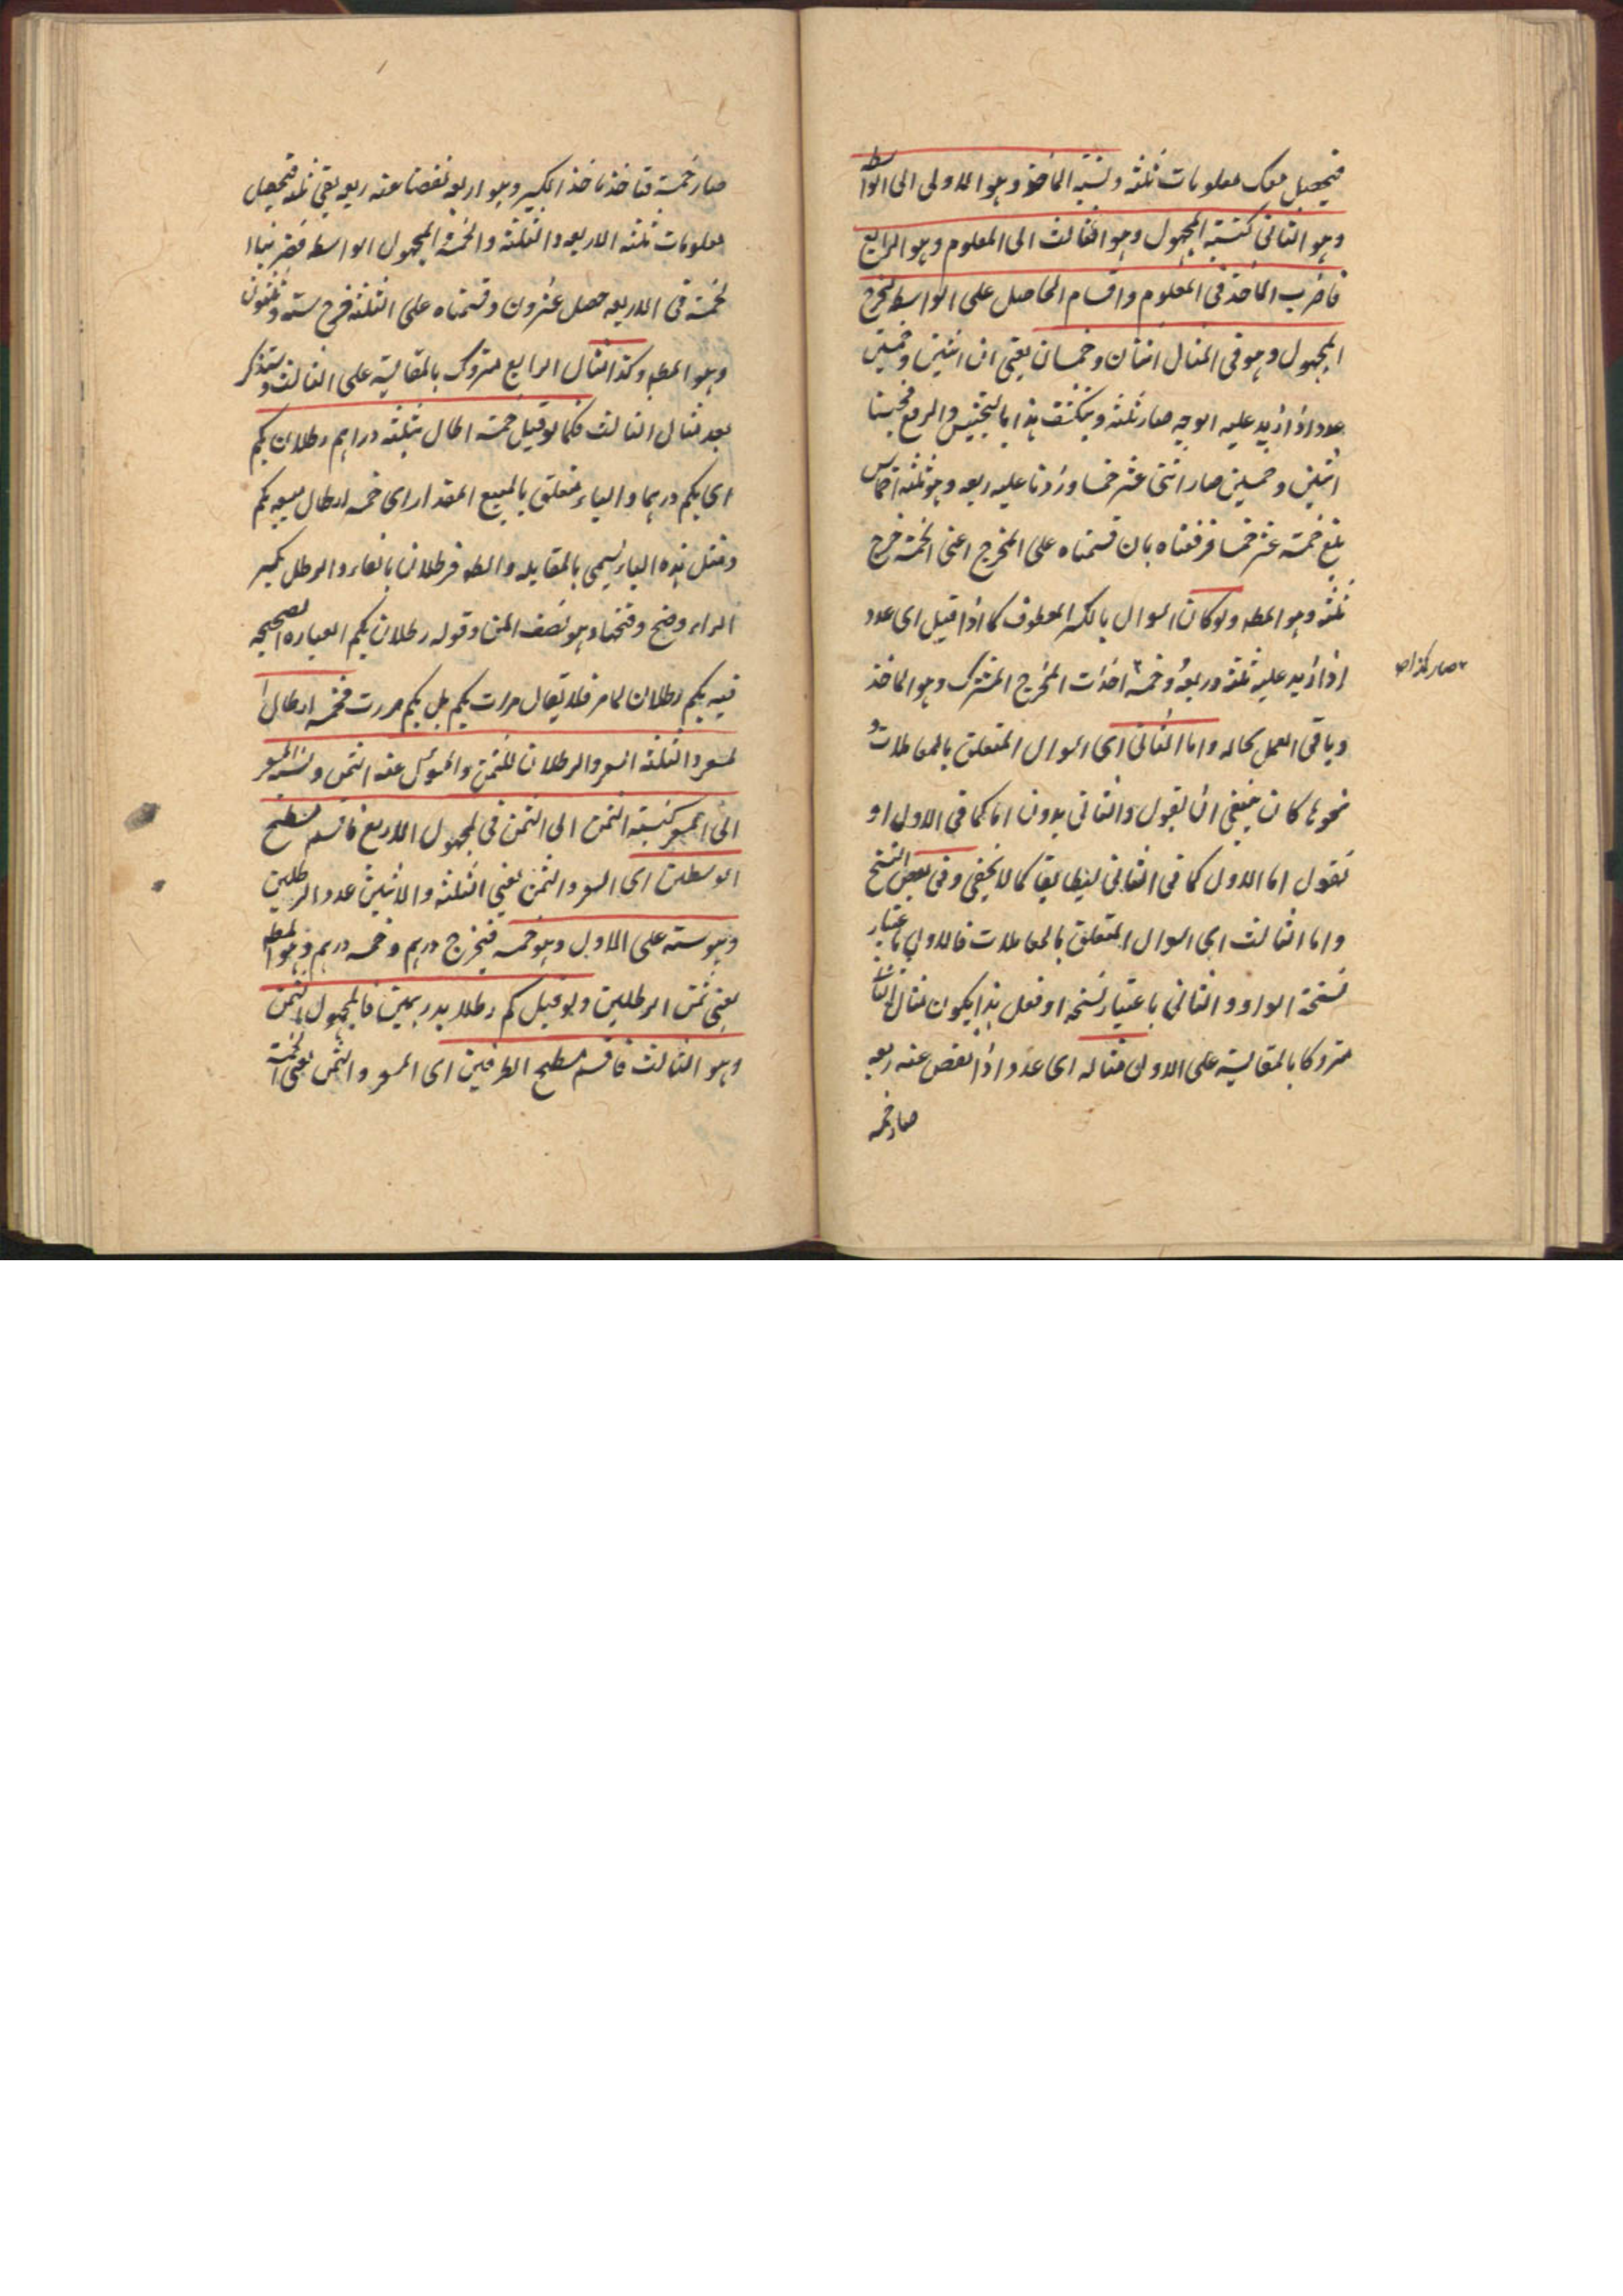 فيحصل معك معلومات ثلثة ونسبة الماخذ وهو الاول الى الواسطه
وهو الثانى كنسبة المجهول وهو الثالث الى المعلوم وهو الرابع
فاضرب الماخذ فى المعلوم واقسم الحاصل على الواسطه ليخرج
المجهول وهو فى المثال اثنان وخمسان يعنى ان اثنين وخمسين
عدد اذا زيد عليه الربع صار ثلثة وينكشف هذا بالتجنيس والرفع فجنسنا
اثنين وخمسين صار اثنى عشر خمسا وزدنا عليه ربعه وهو ثلثة اخماس
بلغ خمسة عشر خمسا فرفعناه بان قسمناه على المخرج اعنى الخمسة خرج
ثلثة وهو المطه ولو كان السوال بالكسر المعطوف كما اذا قيل اى عدد
اذا زيد عليه ثلثه وربعه وخمسه اخذت المخرج المشترك وهو الماخذ
صار كذا صح
وباقى العمل بحاله واما الثانى اى السوال المتعلق بالمعاملات و
نحوها كان ينبغى ان يقول والثانى بدون اما كما فى الاول او
نقول اما الاول كما فى الثانى ليتطابقا كما لا يخفى وفى بعض النسخ
واما الثالث اى السوال المتعلق بالمعاملات فالاول باعتبار
نسخة الواو والثانى باعتبار نسخه او فعلى هذا يكون مثال الثانى
متروكا بالمقايسة على الاول مثاله اى عدد اذا نقص عنه ربعه
صار خمسه
صار خمسة فتاخذ ماخذ الكسر وهو اربعه نقصنا عنه ربعه بقى ثلثه فيحصل
معلومات ثلثه الاربعه والثلثه والخمسة المجهول الواسطه فضربنا ا
لخمسة فى الاربعه حصل عشرون وقسمناه على الثلثه خرج سته وثلثون
وهو المطه وكذا مثال الرابع متروك بالمقايسة على الثالث وستذكر
بعد مثال الثالث فكما لو قيل خمسة ارطال بثلثه دراهم رطلان بكم
اى بكم درهما والباء متعلق بالمبيع المقدار اى خمسه ارطال مبيعه بكم
ومثل هذه الباء يسمى بالمقابله والـطه فرطلان بالفاء والرطل بكسر
الراء وضح وفتحها وهو نصف المن وقوله رطلان بكم العباره الصحيحه
فيه بكم رطلان لما مر فلا يقال مررت بكم بل بكم مررت فخمسه ارطال ا
لمسعر والثلثه السعر والرطلان المثمن والمسؤل عنه الثمن ونسبة المسعر
الى السعر كنسبة المثمن الى الثمن فى المجهول الرابع فاقسم مسطح
الوسطين اى السعر والمثمن يعنى الثلثه والاثنين عدد الرطلين
وهو سته على الاول وهو خمسه فيخرج درهم وخمسه درهم وهو المطه
يعنى ثمن الرطلين ولو قيل كم رطلا بدرهمين فالمجهول المثمن
وهو الثالث فاقسم مسطح الطرفين اى المسعر والثمن يعنى الخمسة